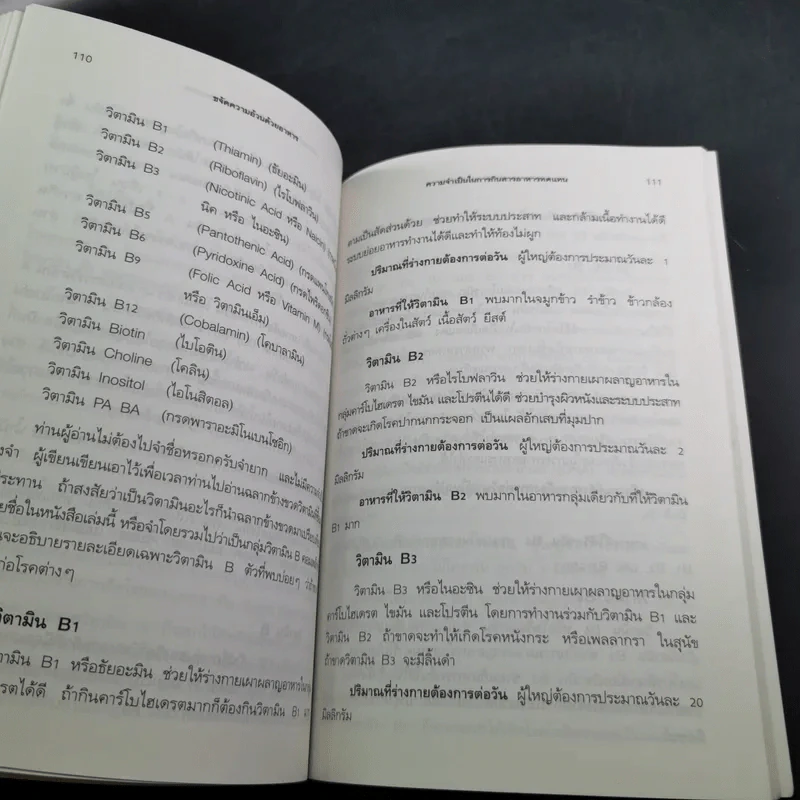 110
ขจัดความอ้วนด้วยอาหาร
วิตามิน B1 (Thiamin) (ธัยอะมิน)
วิตามิน B2 (Riboflavin) (ไรโบฟลาวิน)
วิตามิน B3 (Nicotinic Acid หรือ Niacin)
นิค หรือ ไนอะซิน)
วิตามิน B5 (Pantothenic Acid)
วิตามิน B6 (Pyridoxine Acid)
วิตามิน B9 (Folic Acid หรือ Vitamin M)
หรือ วิตามินเอ็ม)
วิตามิน B12 (Cobalamin) (โคบาลามิน)
วิตามิน Biotin (ไบโอติน)
วิตามิน Choline (โคลิน)
วิตามิน Inositol (ไอโนสิตอล)
วิตามิน PA BA (กรดพาราอะมิโนเบนโซอิก)
ท่านผู้อ่านไม่ต้องไปจำชื่อหรอกครับจำยาก และไม่มีความ
งจำ ผู้เขียนเขียนเอาไว้เพื่อเวลาท่านไปอ่านฉลากข้างขวดวิตามิน
ะทาน ถ้าสงสัยว่าเป็นวิตามินอะไรก็นำฉลากข้างขวดมา
ยชื่อในหนังสือเล่มนี้ หรือจำโดยรวมไปว่าเป็นกลุ่มวิตามิน B
นจะอธิบายรายละเอียดเฉพาะวิตามิน B ตัวที่พบบ่อยๆ
ก่อโรคต่างๆ
วิตามิน B1
ตามิน B1 หรือธัยอะมิน ช่วยให้ร่างกายเผาผลาญอาหาร
รตได้ดี ถ้ากินคาร์โบไฮเดรตมากก็ต้องกินวิตามิน B1
ความจำเป็นในการกินสารอาหารทดแทน 111
ตามเป็นสัดส่วนด้วย ช่วยทำให้ระบบประสาท และกล้ามเนื้อทำงานได้ดี
ระบบย่อยอาหารทำงานได้ดีและทำให้ท้องไม่ผูก
ปริมาณที่ร่างกายต้องการต่อวัน ผู้ใหญ่ต้องการประมาณวันละ 1
มิลลิกรัม
อาหารที่ให้วิตามิน B1 พบมากในจมูกข้าว รำข้าว ข้าวกล้อง
ถั่วต่างๆ เครื่องในสัตว์ เนื้อสัตว์ ยีสต์
วิตามิน B2
วิตามิน B2 หรือไรโบฟลาวิน ช่วยให้ร่างกายเผาผลาญอาหารใน
กลุ่มคาร์โบไฮเดรต ไขมัน และโปรตีนได้ดี ช่วยบำรุงผิวหนังและระบบประสาท
ถ้าขาดจะเกิดโรคปากนกกระจอก เป็นแผลอักเสบที่มุมปาก
ปริมาณที่ร่างกายต้องการต่อวัน ผู้ใหญ่ต้องการประมาณวันละ 2
มิลลิกรัม
อาหารที่ให้วิตามิน B2 พบมากในอาหารกลุ่มเดียวกับที่ให้วิตามิน
B1 มาก
วิตามิน B3
วิตามิน B3 หรือไนอะซิน ช่วยให้ร่างกายเผาผลาญอาหารในกลุ่ม
คาร์โบไฮเดรต ไขมัน และโปรตีน โดยการทำงานร่วมกับวิตามิน B1 และ
วิตามิน B2 ถ้าขาดจะทำให้เกิดโรคหนังกระ หรือเพลลากรา ในสุนัข
ถ้าขาดวิตามิน B3 จะมีลิ้นดำ
ปริมาณที่ร่างกายต้องการต่อวัน ผู้ใหญ่ต้องการประมาณวันละ 20
มิลลิกรัม